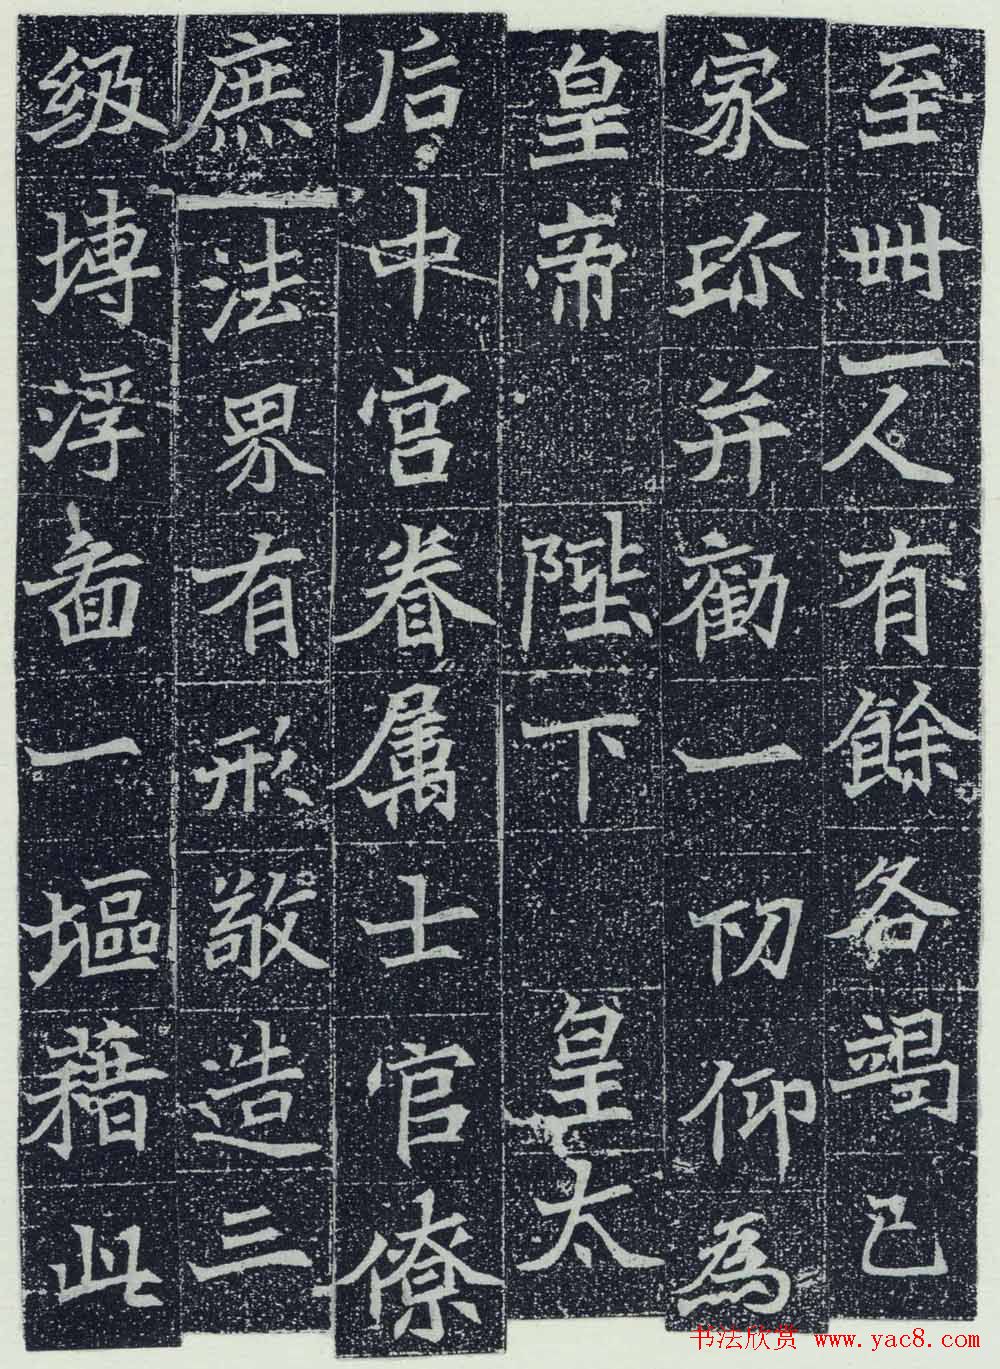 至卌一人有餘各竭己
家珎并勸一切仰為
皇帝 陛下 皇太
后中宫眷属士官僚
庶法界有形敬造三
级塼浮啚一塸藉此
书法欣赏 www.yac8.com